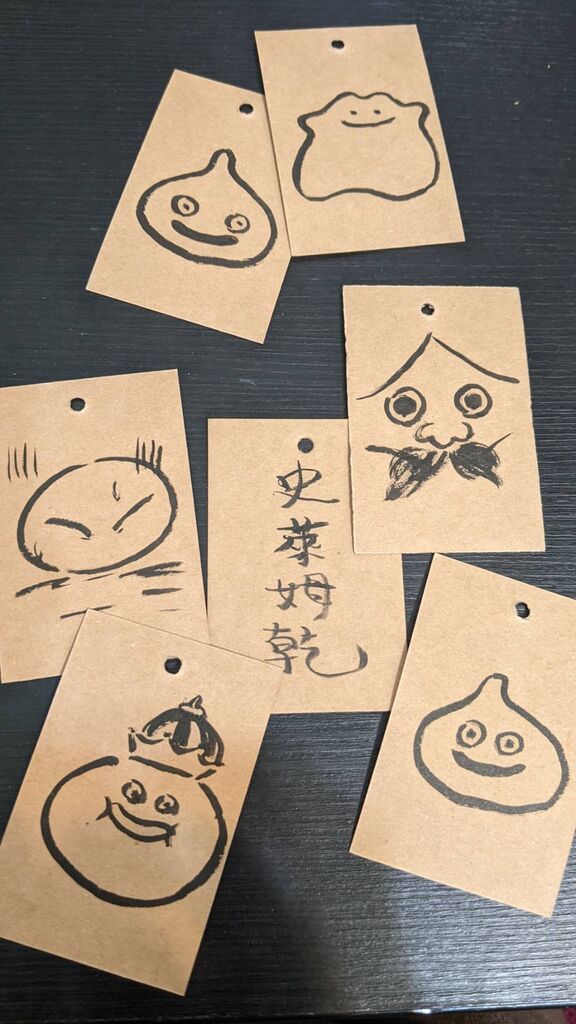 史
萊
姆
乾